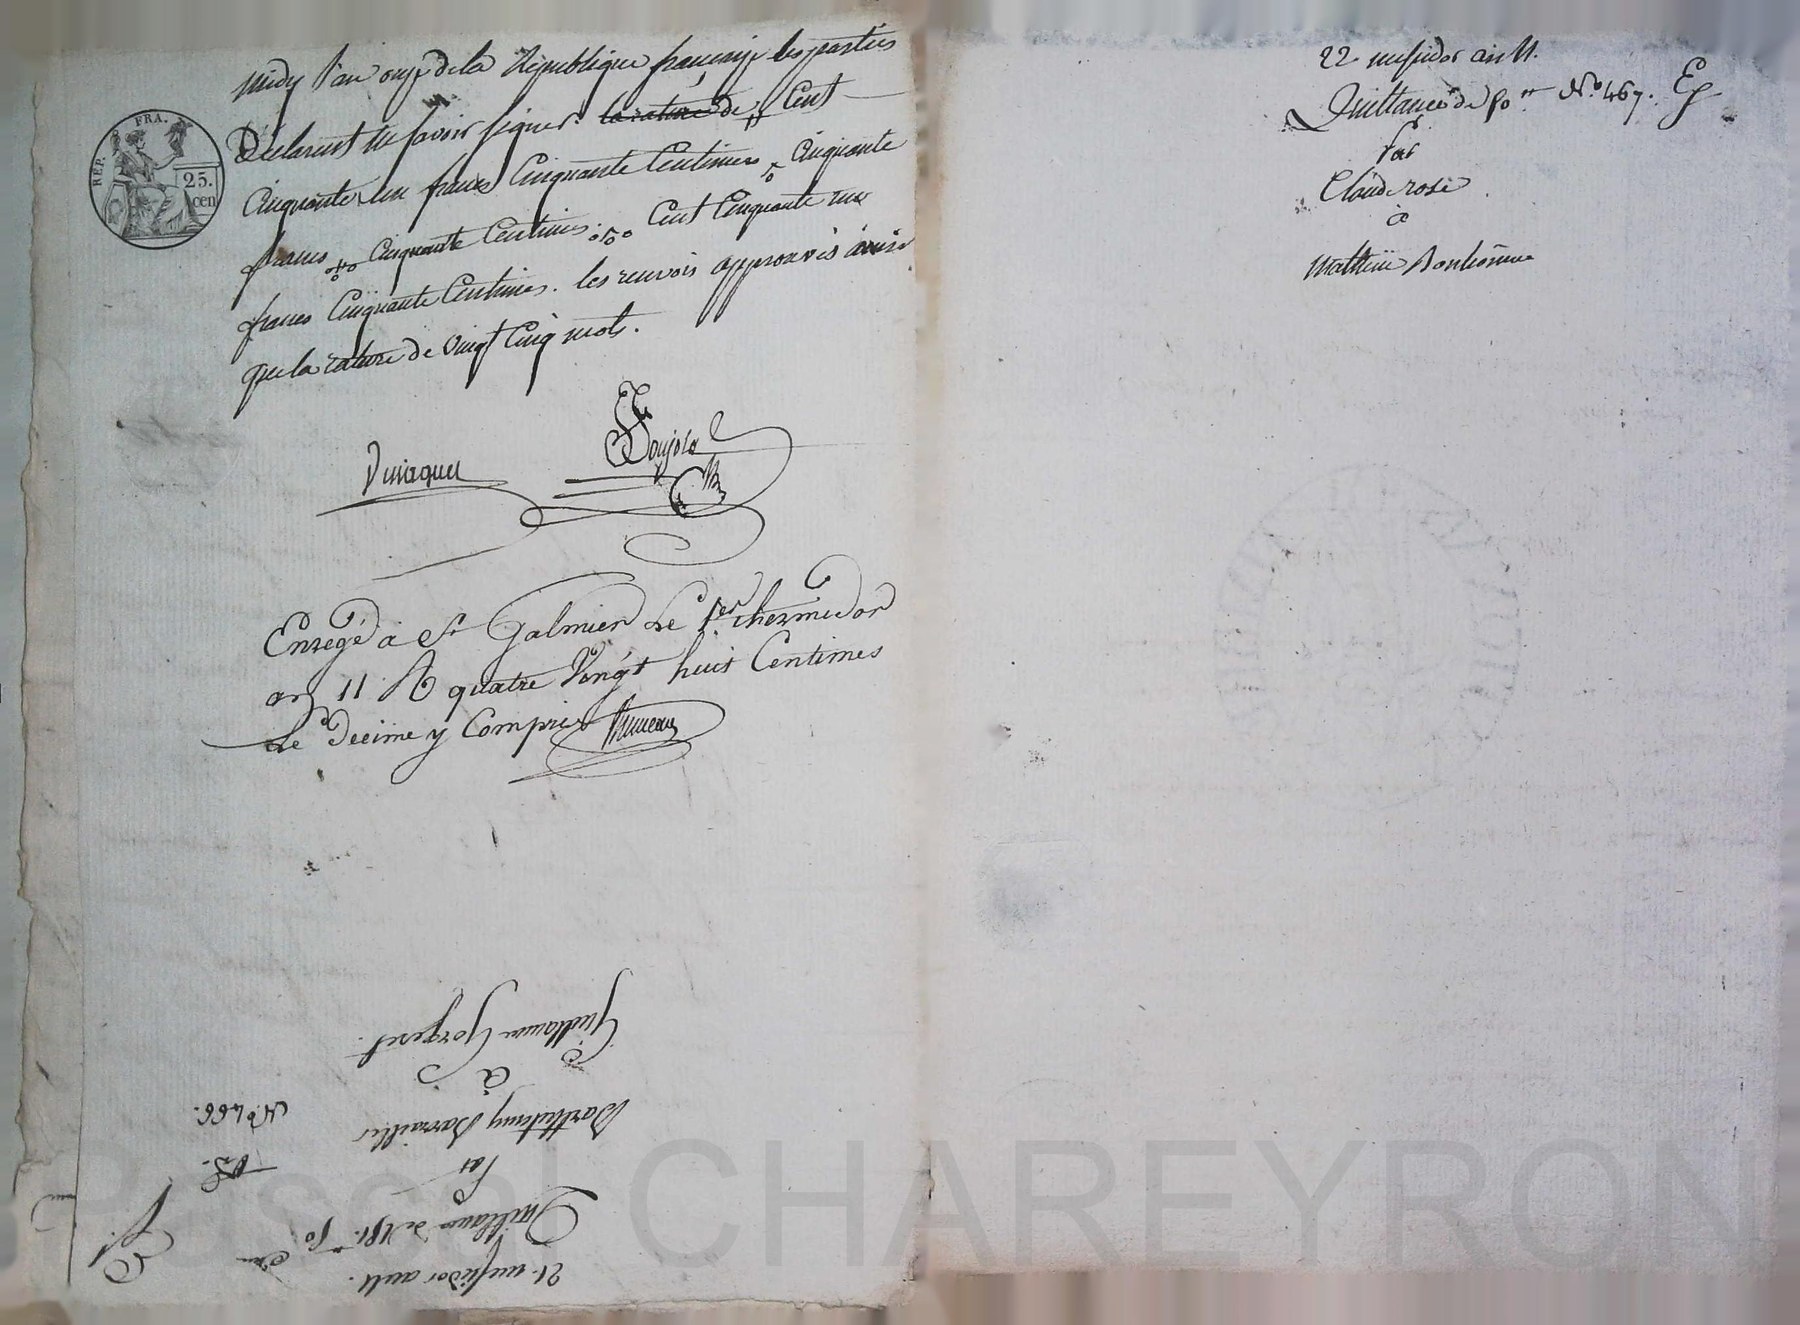 midy l'an onze de la République française les parties
REP. FRA.
25.
cen
Déclarent ne savoir signer. la rature de Cent
Cinquante un francs Cinquante Centimes Cinquante
francs Cinquante Centimes. Cent Cinquante un
francs Cinquante Centimes. les renvois approuvés ainsi
que la rature de vingt Cinq mots.
Enregé à St Galmier Le 1er thermidor
an 11 R quatre Vingt huit Centimes
Le Decime y Compris
21 messidor an 11.
Quittance de 151.ᶠ 50
Par
Barthelemy Barrailler
N.º 466.
à
Guillaume Gorgeret.
22 messidor an 11.
Quittance de 50 N.º 467.
Par
Claude rose
à
Mathieu Bonhomme
Pascal CHAREYRON